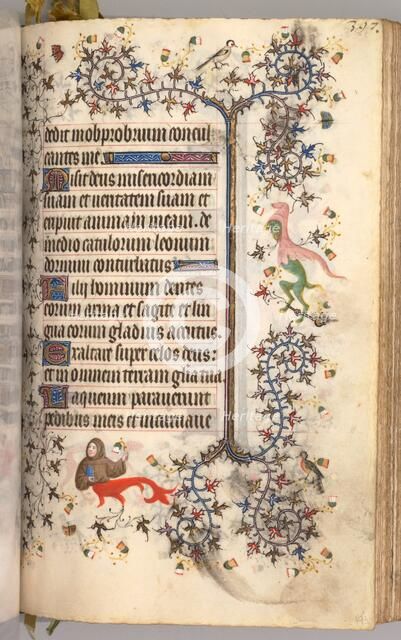 397.
dedit in obprobrium concul
cantes me.
Misit deus misericordiam
suam et ueritatem suam et
eripuit animam meam. de
medio catulorum leonum
dormiui conturbatus
Filij hominum dentes
eorum arma et sagitte et lin
gua eorum gladius acutus.
Exaltare super celos deus:
et in omnem terram gloria tua
Laqueum parauerunt
pedibus meis et incuruaue
Heritage
Heritage
Heritage
Heritage
Heritage